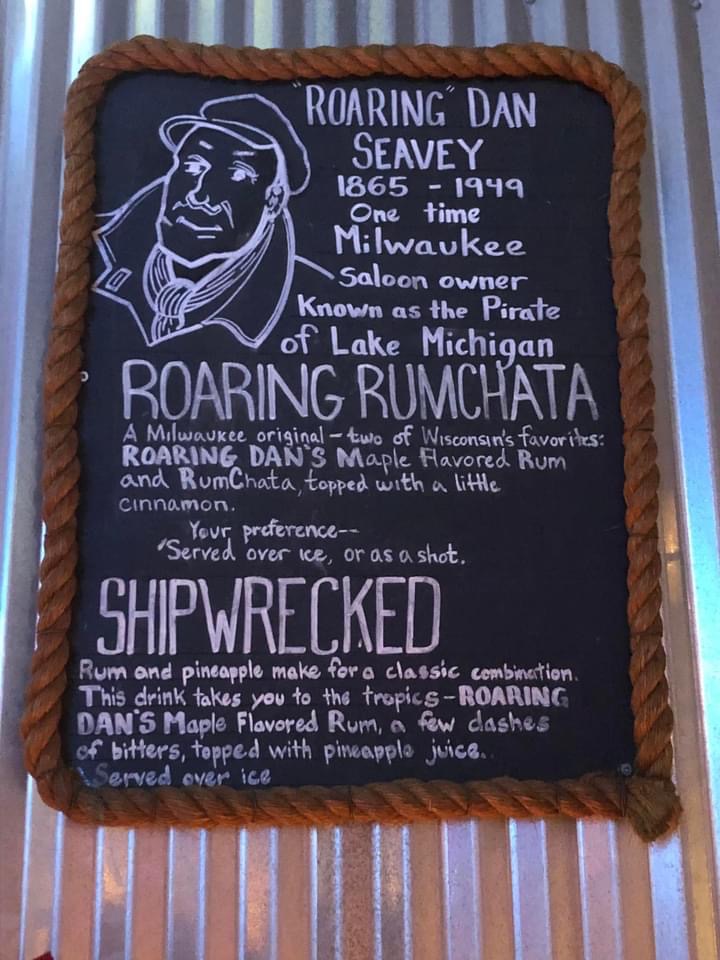 "ROARING" DAN
SEAVEY
1865 - 1949
One time
Milwaukee
Saloon owner
Known as the Pirate
of Lake Michigan
ROARING RUMCHATA
A Milwaukee original - two of Wisconsin's favorites:
ROARING DAN'S Maple Flavored Rum
and RumChata, topped with a little
cinnamon.
Your preference--
Served over ice, or as a shot.
SHIPWRECKED
Rum and pineapple make for a classic combination.
This drink takes you to the tropics - ROARING
DAN'S Maple Flavored Rum, a few dashes
of bitters, topped with pineapple juice.
Served over ice